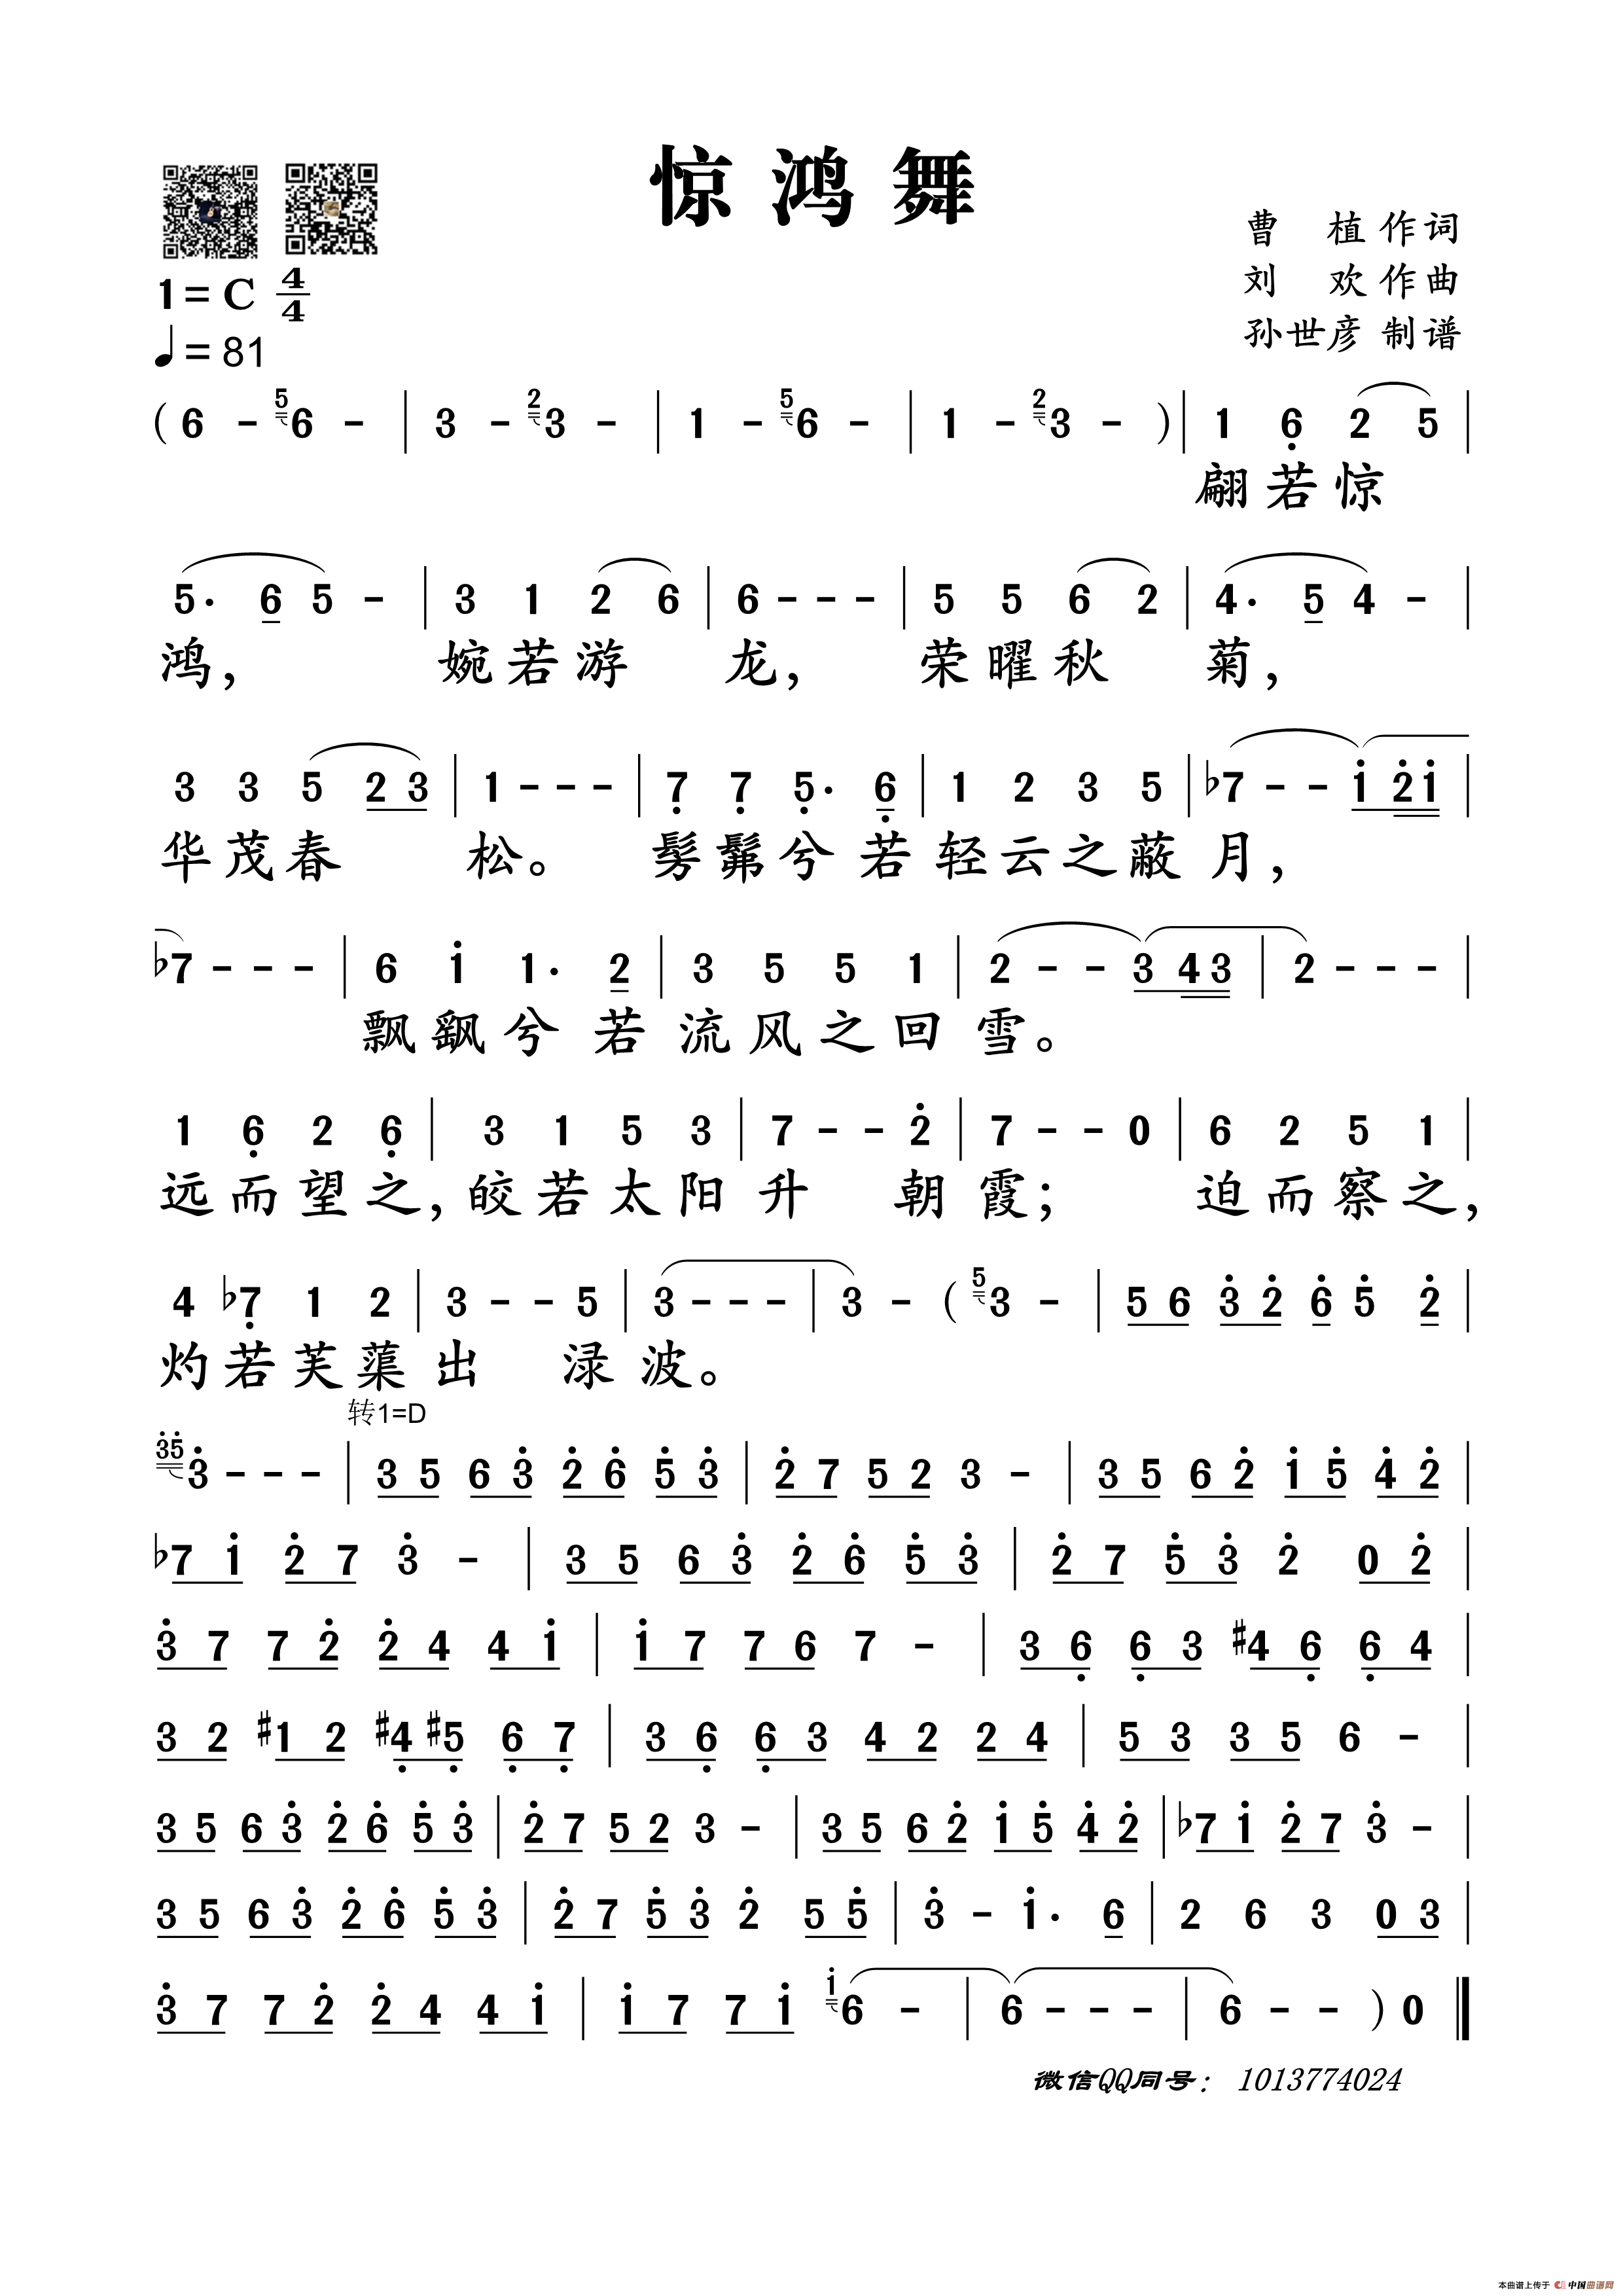 惊鸿舞
曹 植 作词
刘 欢 作曲
孙世彦 制谱
1= C 4/4
♩= 81
( 6 - 5 6 - | 3 - 2 3 - | 1 - 5 6 - | 1 - 2 3 - ) | 1 6̣ 2 5 |
翩若惊
5· 6 5 - | 3 1 2 6 | 6 - - - | 5 5 6 2 | 4· 5 4 - |
鸿， 婉若游 龙， 荣曜秋 菊，
3 3 5 2 3 | 1 - - - | 7̣ 7̣ 5̣· 6̣ | 1 2 3 5 | ♭7 - - 1̇ 2̇ 1̇ |
华茂春 松。 髣髴兮 若轻云之蔽 月，
♭7 - - - | 6 1̇ 1· 2 | 3 5 5 1 | 2 - - 3 4 3 | 2 - - - |
飘飖兮 若流风之回 雪。
1 6̣ 2 6̣ | 3 1 5 3 | 7 - - 2̇ | 7 - - 0 | 6 2 5 1 |
远而望之，皎若太阳升 朝霞； 迫而察之，
4 ♭7̣ 1 2 | 3 - - 5 | 3 - - - | 3 - ( 5 3 - | 5 6 3̇ 2̇ 6̇ 5̇ 2̇ |
灼若芙蕖出 渌波。
转1=D
3̇5̇ 3̇ - - - | 3 5 6 3̇ 2̇ 6̇ 5̇ 3̇ | 2̇ 7 5 2 3 - | 3 5 6 2̇ 1̇ 5̇ 4̇ 2̇ |
♭7 1̇ 2̇ 7 3̇ - | 3 5 6 3̇ 2̇ 6̇ 5̇ 3̇ | 2̇ 7 5̇ 3̇ 2̇ 0 2̇ |
3̇ 7 7 2̇ 2̇ 4 4 1̇ | 1̇ 7 7 6 7 - | 3 6̣ 6̣ 3 #4 6̣ 6̣ 4 |
3 2 #1 2 #4̣ #5̣ 6̣ 7̣ | 3 6̣ 6̣ 3 4 2 2 4 | 5 3 3 5 6 - |
3 5 6 3̇ 2̇ 6̇ 5̇ 3̇ | 2̇ 7 5 2 3 - | 3 5 6 2̇ 1̇ 5̇ 4̇ 2̇ | ♭7 1̇ 2̇ 7 3̇ - |
3 5 6 3̇ 2̇ 6̇ 5̇ 3̇ | 2̇ 7 5̇ 3̇ 2̇ 5 5̇ | 3̇ - 1̇· 6 | 2 6 3 0 3 |
3̇ 7 7 2̇ 2̇ 4 4 1̇ | 1̇ 7 7 1̇ 1̇ 6 - | 6 - - - | 6 - - ) 0 ‖
微信QQ同号： 1013774024
本曲谱上传于 中国曲谱网